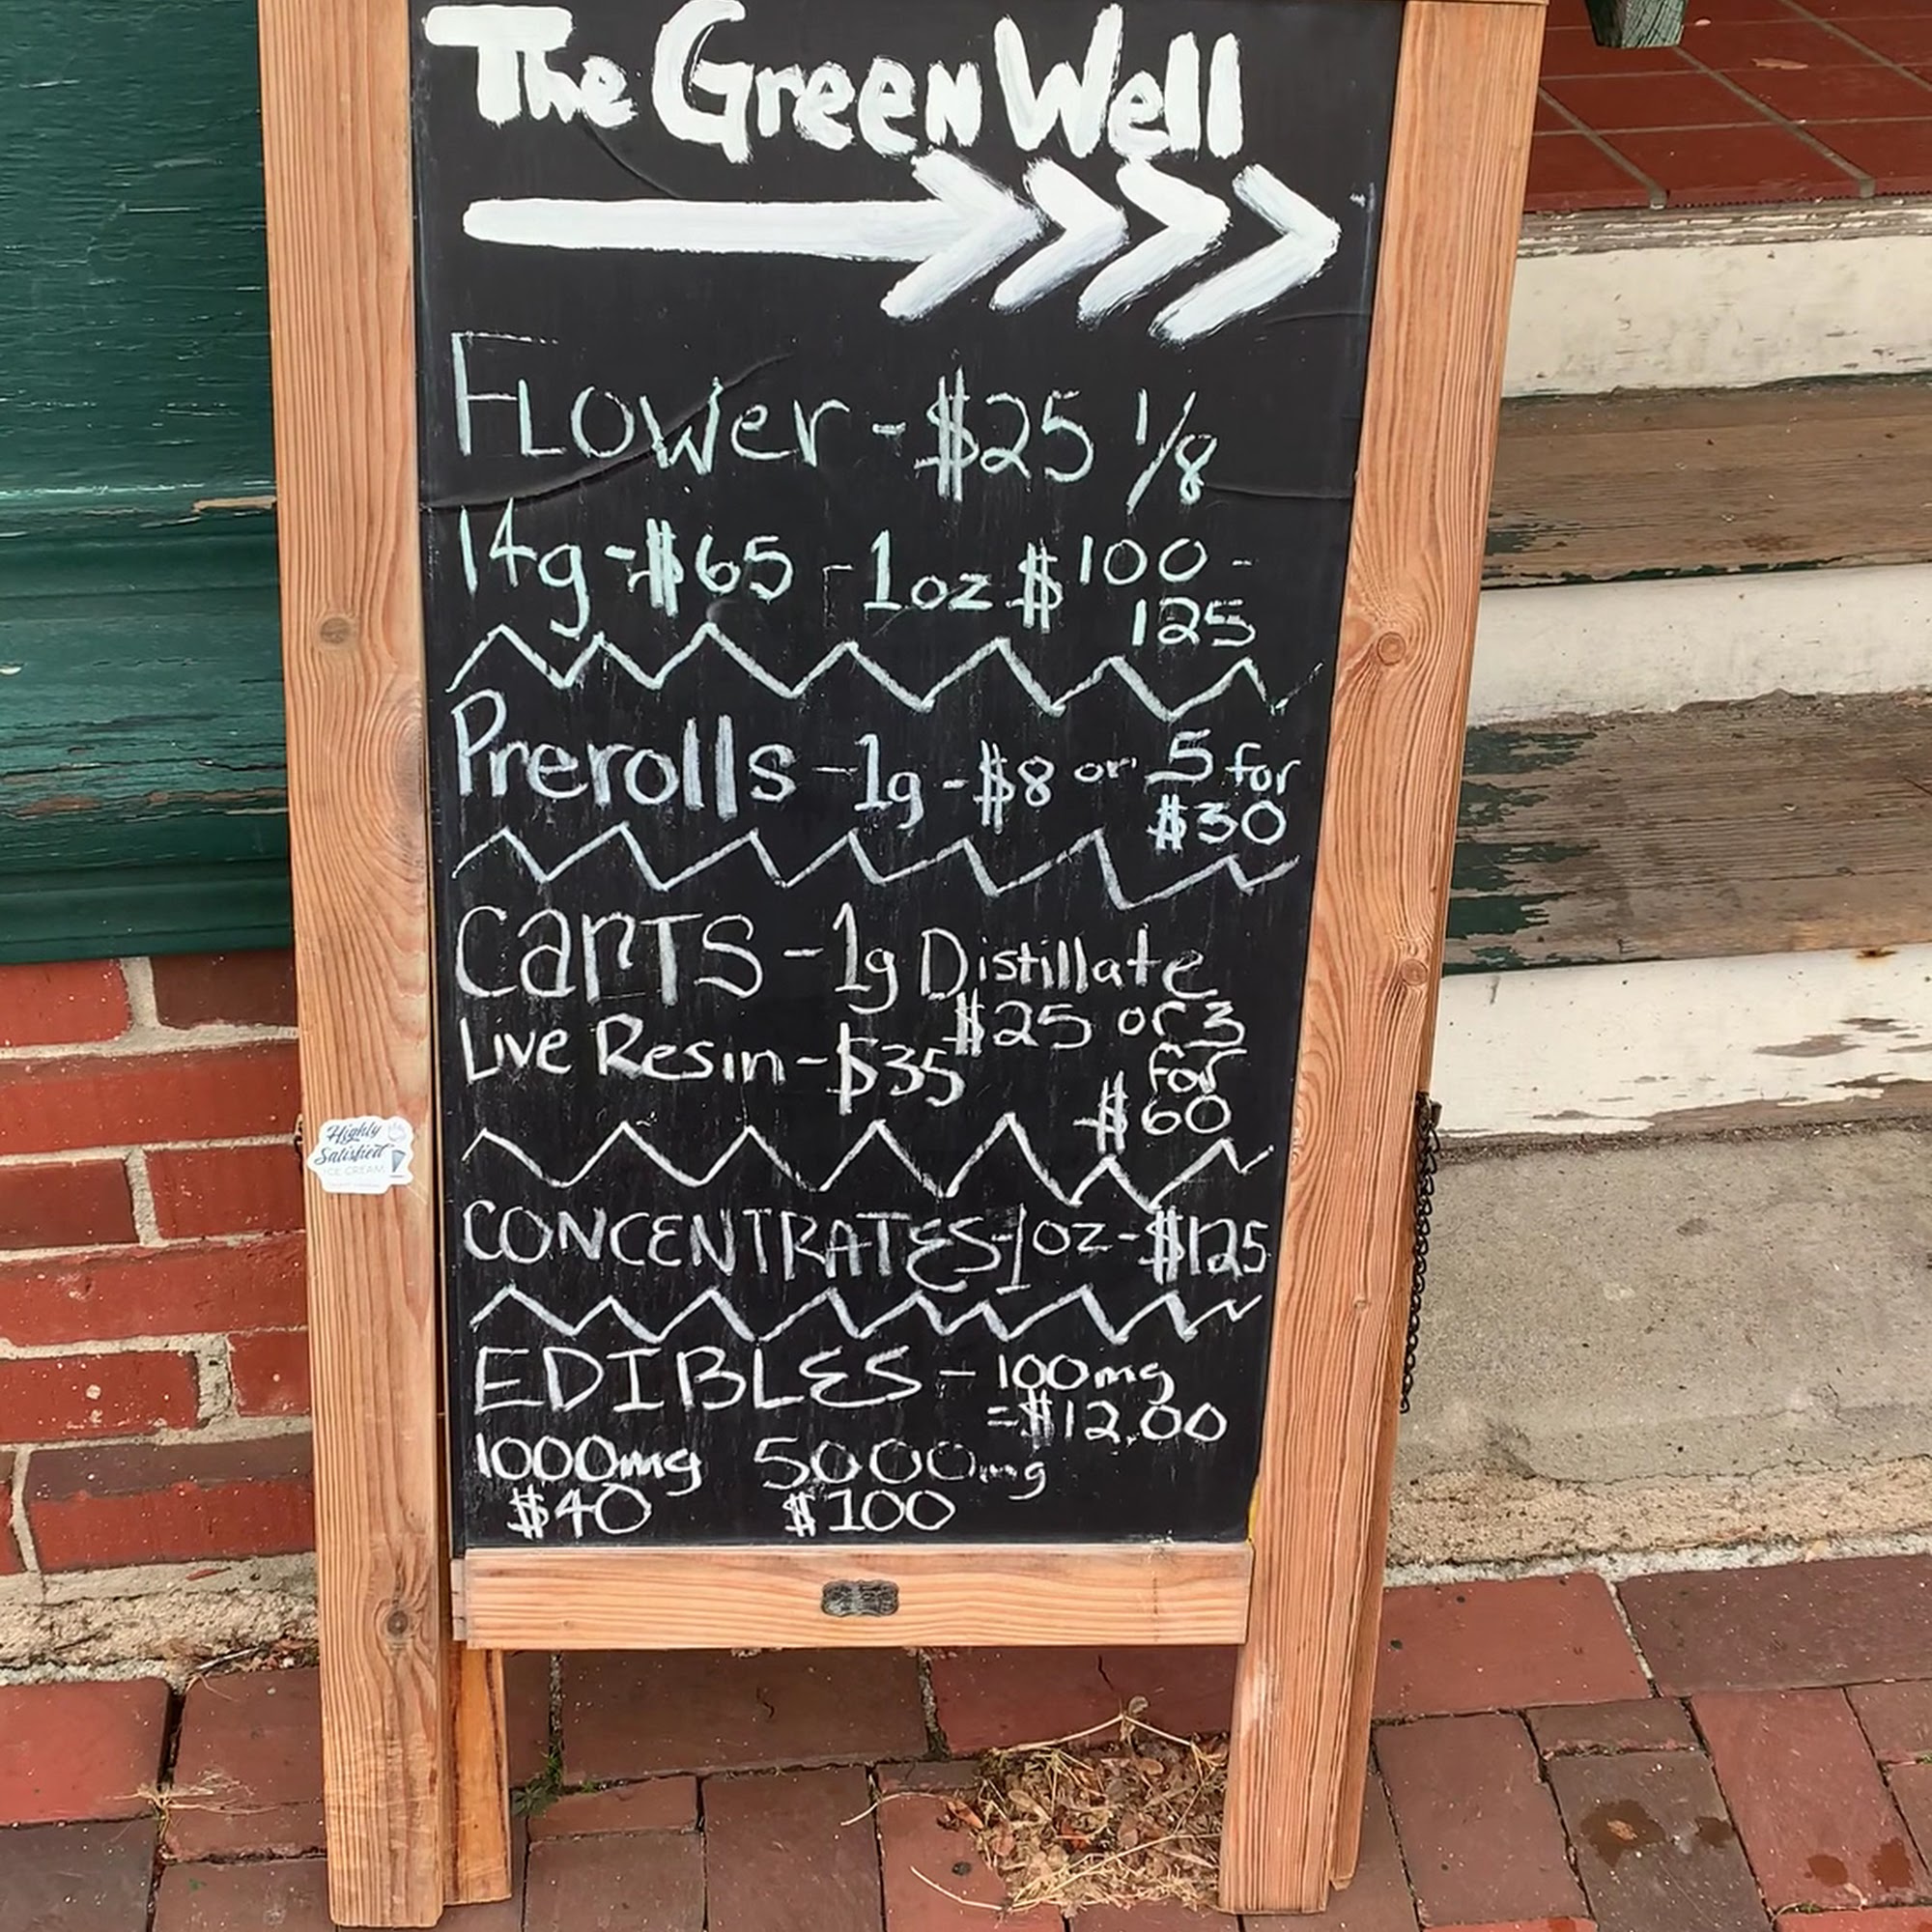 The Green Well
Flower - $25 1/8
14g - $65 - 1oz $100 -
125
Prerolls - 1g - $8 or 5 for
$30
Carts - 1g Distillate
$25 or 3
Live Resin - $35 for
$60
CONCENTRATES - 1oz - $125
EDIBLES - 100mg
= $12.00
1000mg 5000mg
$40 $100
Highly
Satisfied
ICE CREAM